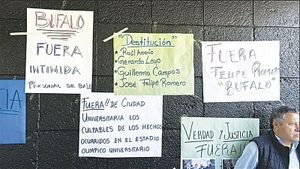 BUFALO
FUERA
INTIMIDA
PERSONAL DE BASE
"Destitución"
• Raúl Arenio
• Gerardo Loyo
• Guillermo Campos
• José Felipe Romero
FUERA
FELIPE ROMERO
"BUFALO"
FUERA!! DE CIUDAD
UNIVERSITARIA LOS
CULPABLES DE LOS HECHOS
OCURRIDOS EN EL ESTADIO
OLIMPICO UNIVERSITARIO
VERDAD Y JUSTICIA
FUERA!
CIA